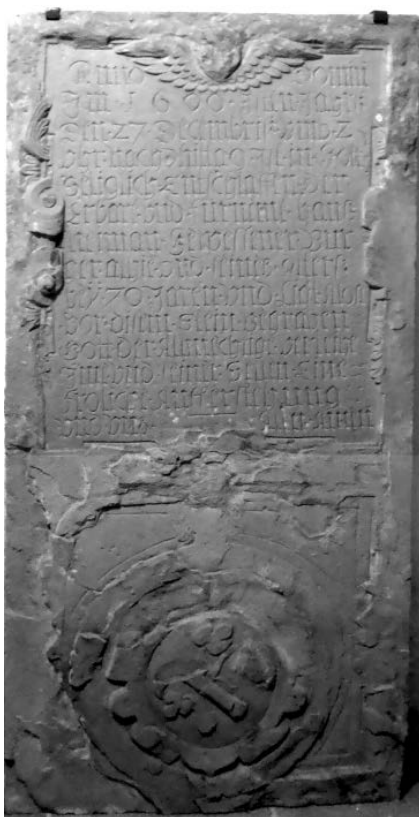 Anno Domini
Im 1600
Den 27 Decembris umb 2
Uhr nach Mittag ist in Got
Seliglich Entschlaffen Der
Erbar und furnem Hans
Gewessener Bur
ger alhie und seines alters
bey 70 Jaren und ligt
Vor disem Stein Begraben
Gott Der Almechtige verleihe
Im und seiner Selen Eine
froliche Aufferstehung
und uns Allen Amen